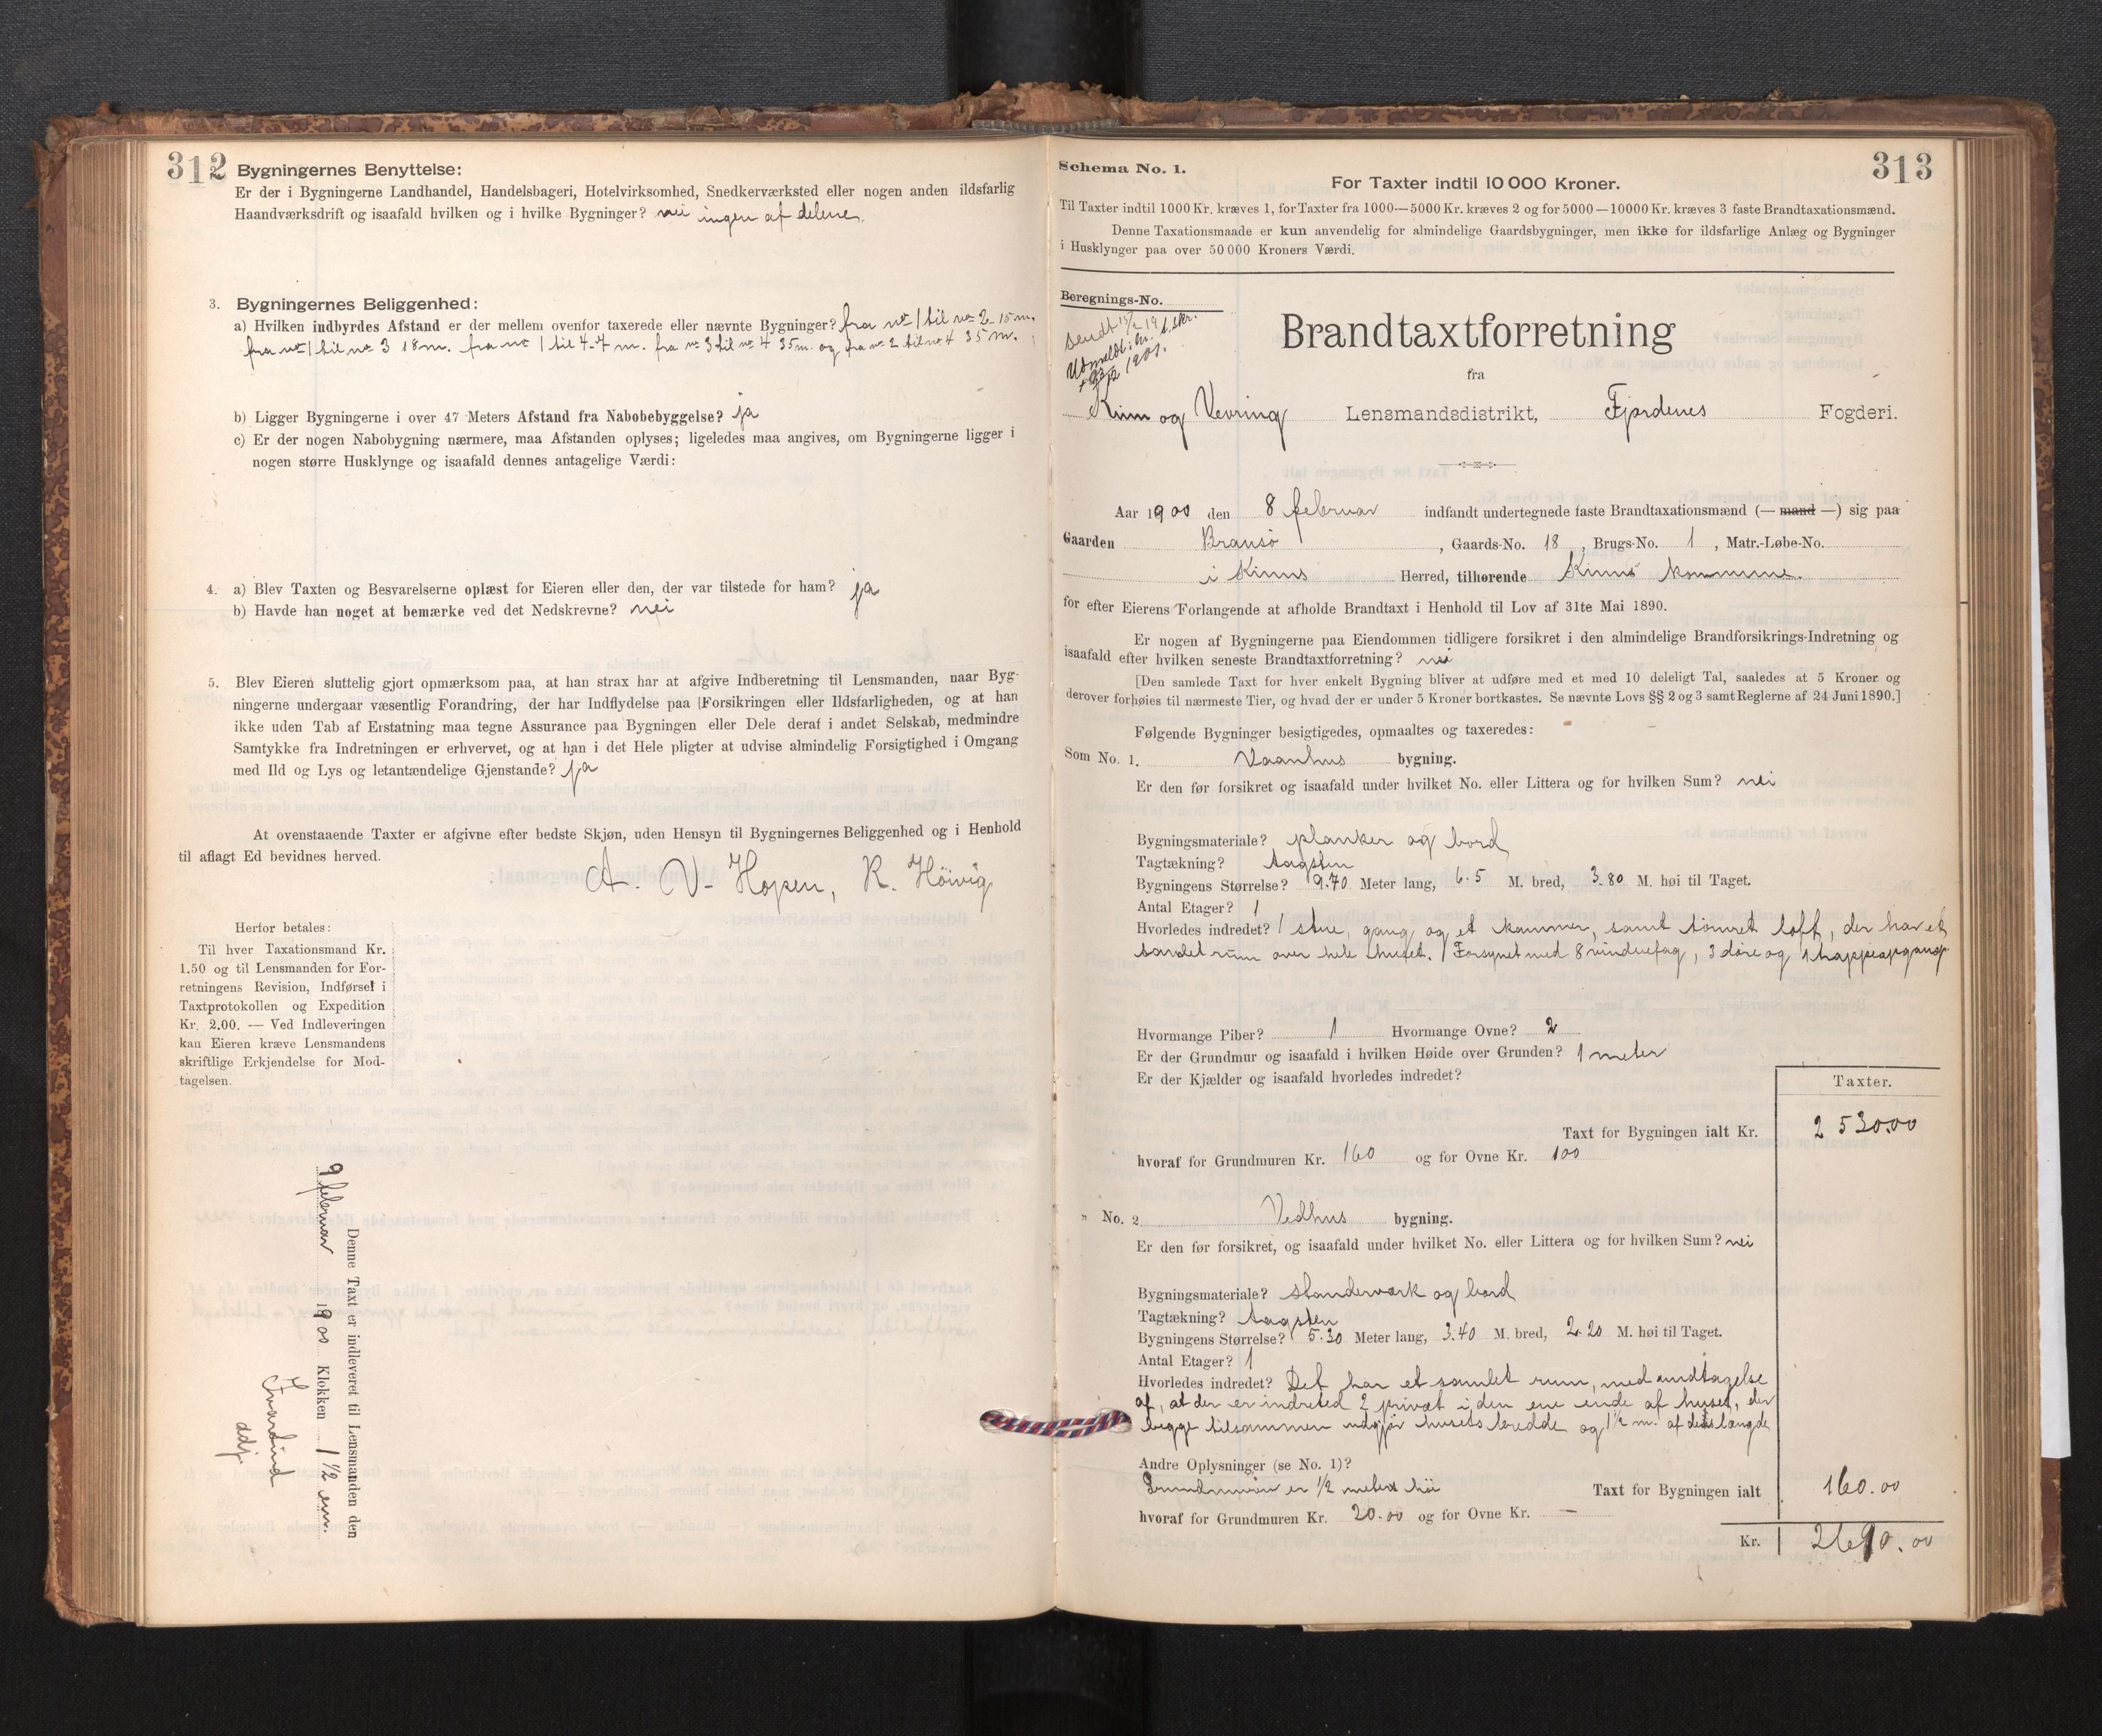 312
Bygningernes Benyttelse:
Er der i Bygningerne Landhandel, Handelsbageri, Hotelvirksomhed, Snedkerværksted eller nogen anden ildsfarlig
Haandværksdrift og isaafald hvilken og i hvilke Bygninger? nei ingen af delene.
3. Bygningernes Beliggenhed:
a) Hvilken indbyrdes Afstand er der mellem ovenfor taxerede eller nævnte Bygninger? fra no 1 til no 2 15 m.
fra no 1 til no 3 18 m. fra no 1 til 4-7 m. fra no 3 til no 4 35 m. og fra no 2 til no 4 35 m.
b) Ligger Bygningerne i over 47 Meters Afstand fra Nabobebyggelse? ja
c) Er der nogen Nabobygning nærmere, maa Afstanden oplyses; ligeledes maa angives, om Bygningerne ligger i
nogen større Husklynge og isaafald dennes antagelige Værdi:
4. a) Blev Taxten og Besvarelserne oplæst for Eieren eller den, der var tilstede for ham? ja
b) Havde han noget at bemærke ved det Nedskrevne? nei
5. Blev Eieren sluttelig gjort opmærksom paa, at han strax har at afgive Indberetning til Lensmanden, naar Byg-
ningerne undergaar væsentlig Forandring, der har Indflydelse paa Forsikringen eller Ildsfarligheden, og at han
ikke uden Tab af Erstatning maa tegne Assurance paa Bygningen eller Dele deraf i andet Selskab, medmindre
Samtykke fra Indretningen er erhvervet, og at han i det Hele pligter at udvise almindelig Forsigtighed i Omgang
med Ild og Lys og letantændelige Gjenstande? ja
At ovenstaaende Taxter er afgivne efter bedste Skjøn, uden Hensyn til Bygningernes Beliggenhed og i Henhold
til aflagt Ed bevidnes herved.
A. V. Hopen, R. Höivig
Herfor betales:
Til hver Taxationsmand Kr.
1.50 og til Lensmanden for For-
retningens Revision, Indførsel i
Taxtprotokollen og Expedition
Kr. 2.00. — Ved Indleveringen
kan Eieren kræve Lensmandens
skriftlige Erkjendelse for Mod-
tagelsen.
Denne Taxt er indleveret til Lensmanden den
9 februar 1900 Klokken 1 1/2 em.
313
Schema No. 1.
For Taxter indtil 10 000 Kroner.
Til Taxter indtil 1000 Kr. kræves 1, for Taxter fra 1000—5000 Kr. kræves 2 og for 5000—10000 Kr. kræves 3 faste Brandtaxationsmænd.
Denne Taxationsmaade er kun anvendelig for almindelige Gaardsbygninger, men ikke for ildsfarlige Anlæg og Bygninger
i Husklynger paa over 50 000 Kroners Værdi.
Beregnings-No.
Brandtaxtforretning
fra
Kinn og Vevring Lensmandsdistrikt, Fjordenes Fogderi.
Aar 1900 den 8 februar indfandt undertegnede faste Brandtaxationsmænd (— mand —) sig paa
Gaarden Bransö, Gaards-No. 18, Brugs-No. 1, Matr.-Løbe-No.
i Kinns Herred, tilhørende Kinns kommune.
for efter Eierens Forlangende at afholde Brandtaxt i Henhold til Lov af 31te Mai 1890.
Er nogen af Bygningerne paa Eiendommen tidligere forsikret i den almindelige Brandforsikrings-Indretning og
isaafald efter hvilken seneste Brandtaxtforretning? nei
[Den samlede Taxt for hver enkelt Bygning bliver at udføre med et med 10 deleligt Tal, saaledes at 5 Kroner og
derover forhøies til nærmeste Tier, og hvad der er under 5 Kroner bortkastes. Se nævnte Lovs §§ 2 og 3 samt Reglerne af 24 Juni 1890.]
Følgende Bygninger besigtigedes, opmaaltes og taxeredes:
Som No. 1. Vaanhus bygning.
Er den før forsikret og isaafald under hvilket No. eller Littera og for hvilken Sum? nei
Bygningsmateriale? planker og bord
Tagtækning? tagsten
Bygningens Størrelse? 9.70 Meter lang, 6.5 M. bred, 3.80 M. høi til Taget.
Antal Etager? 1
Hvorledes indredet? 1 stue, gang og et kammer, samt tömret loft, der har et
samlet rum over hele huset. Forsynet med 8 vinduefag, 3 döre og 1
Hvormange Piber? 1 Hvormange Ovne? 2
Er der Grundmur og isaafald i hvilken Høide over Grunden? 1 meter
Er der Kjælder og isaafald hvorledes indredet?
Taxter.
Taxt for Bygningen ialt Kr. 2530.00
hvoraf for Grundmuren Kr. 160 og for Ovne Kr. 100
" No. 2. Vedhus bygning.
Er den før forsikret, og isaafald under hvilket No. eller Littera og for hvilken Sum? nei
Bygningsmateriale? standerværk og bord
Tagtækning? tagsten
Bygningens Størrelse? 5.30 Meter lang, 3.40 M. bred, 2.20 M. høi til Taget.
Antal Etager? 1
Hvorledes indredet? Det har et samlet rum, med undtagelse
af, at der er indreded 2 privat i den ene ende af huset, der
begge tilsammen udgjör husets bredde og 1 1/2 m. af dets længde
Andre Oplysninger (se No. 1)?
Grundmuren er 1/2 meter höi Taxt for Bygningen ialt 160.00
hvoraf for Grundmuren Kr. 20.00 og for Ovne Kr. —
Kr. 2690.00